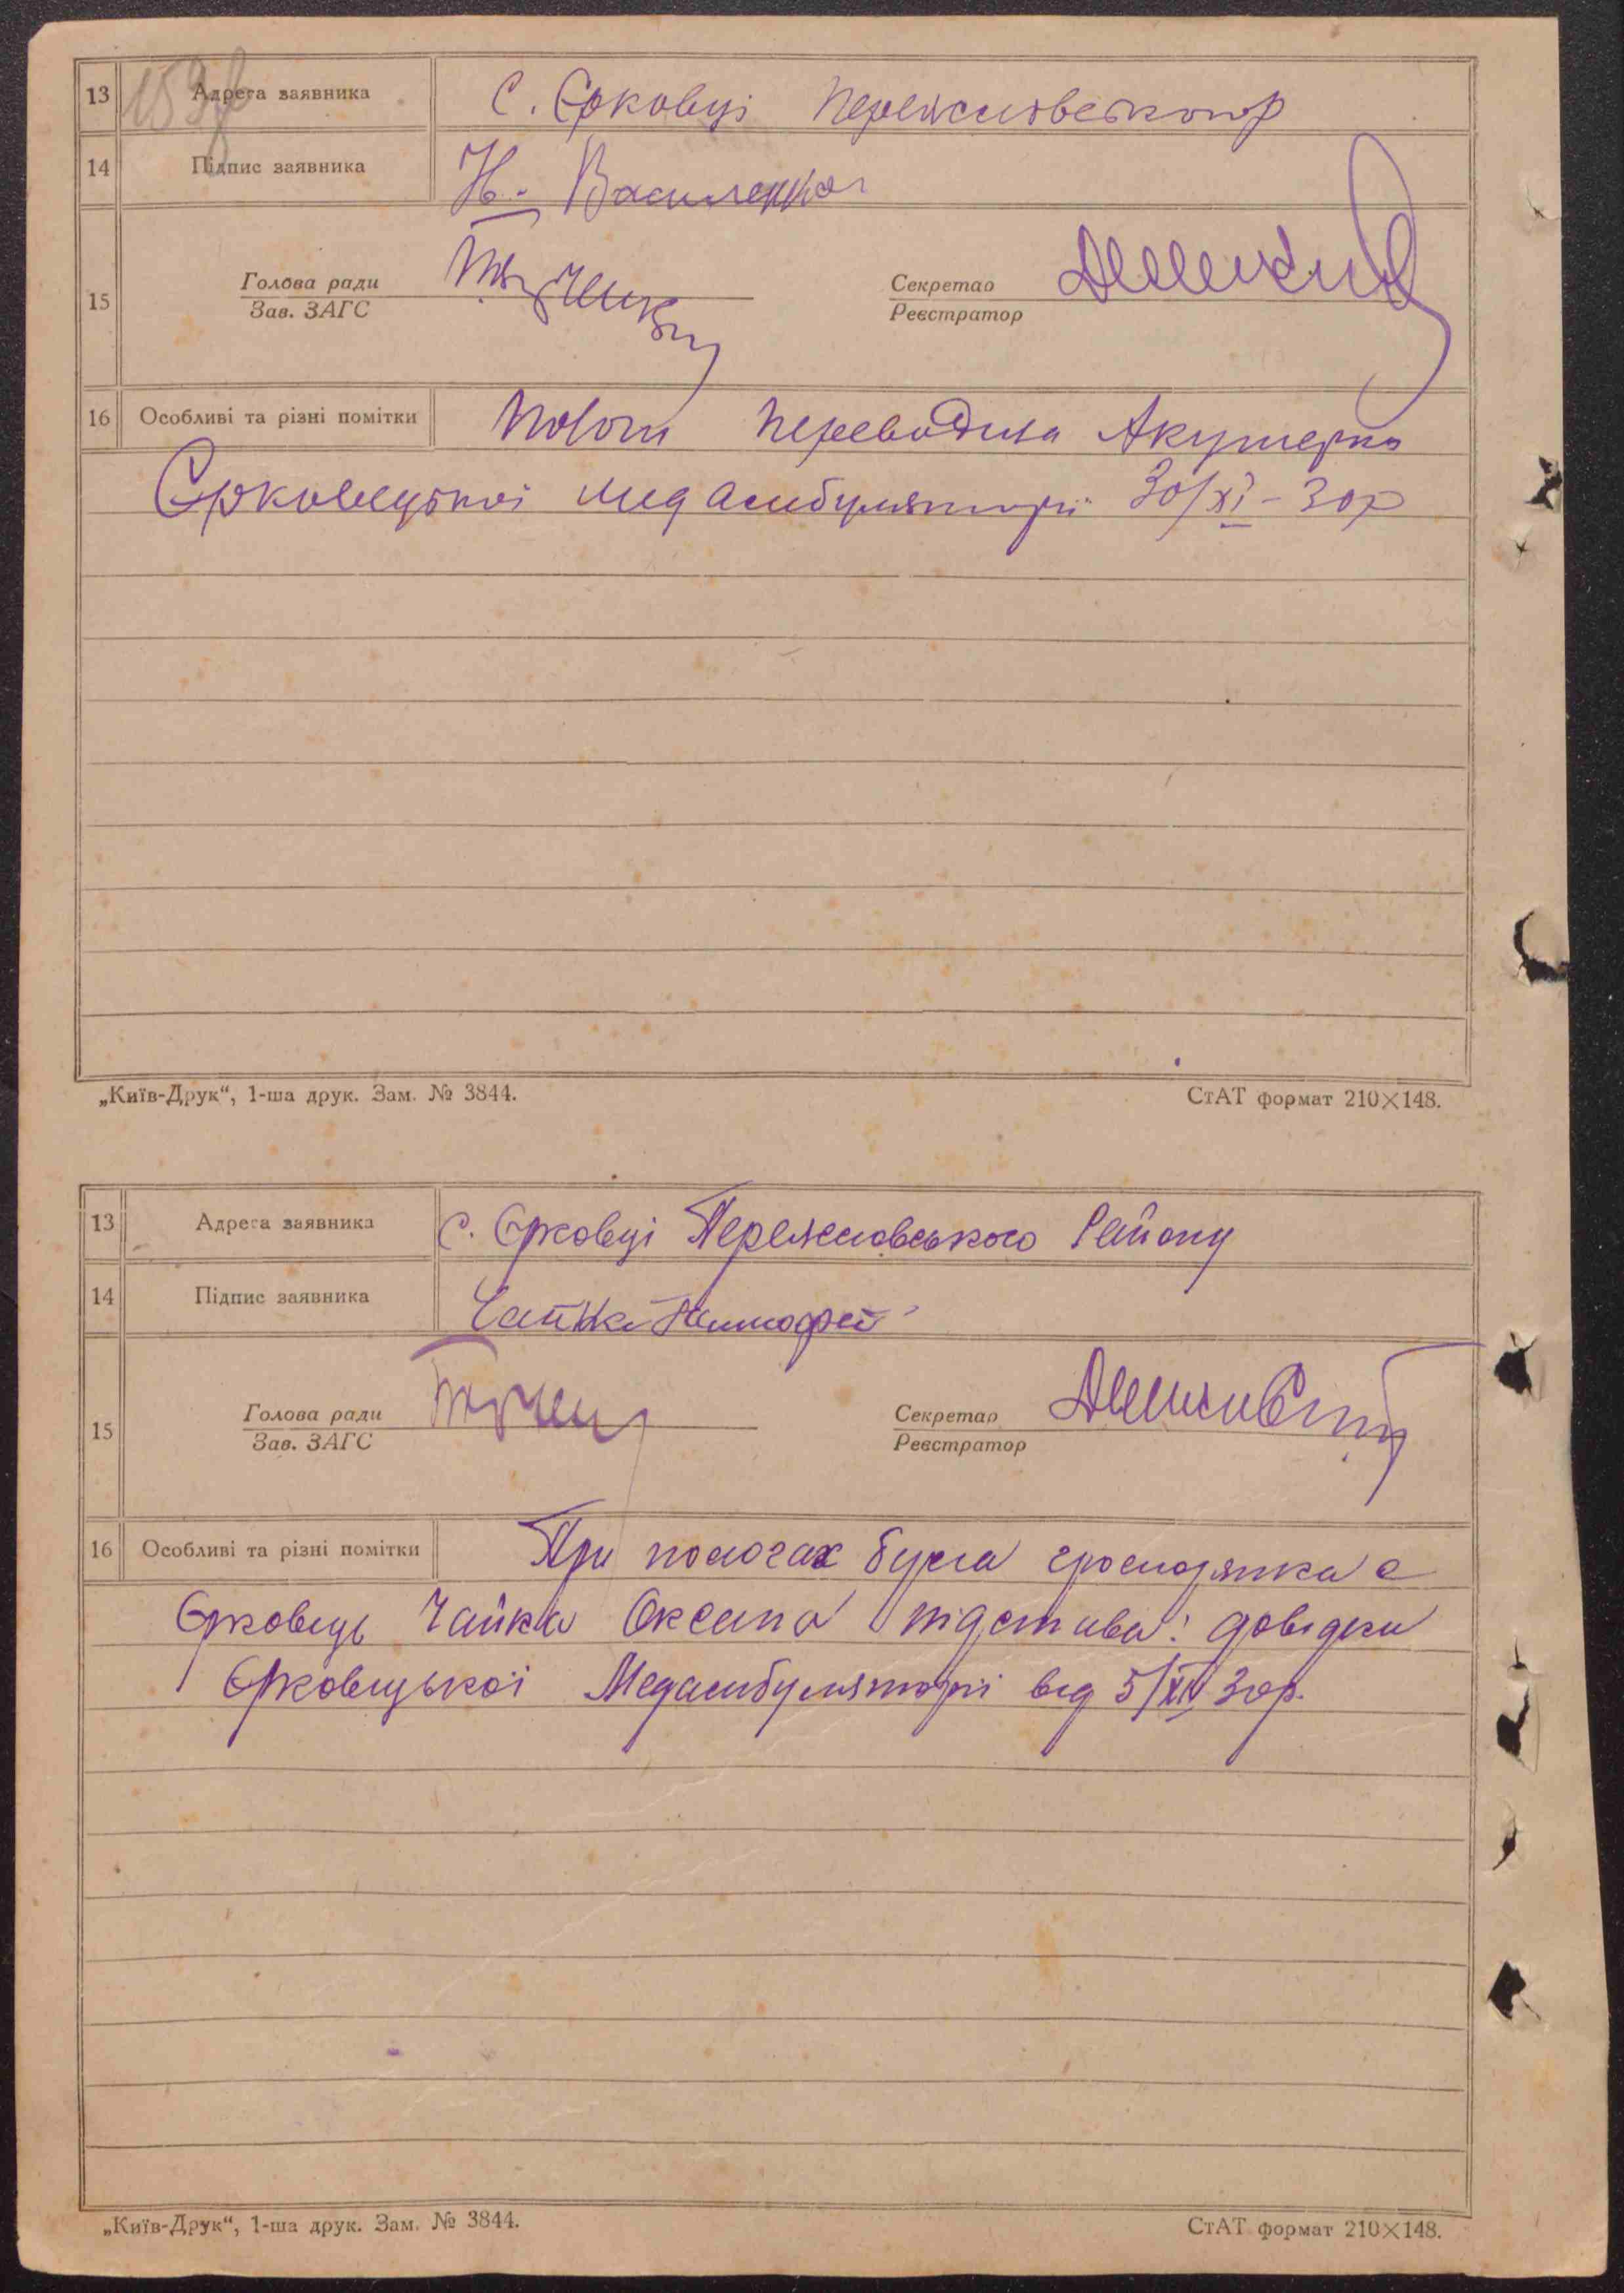 153зв
13 Адреса заявника С. Єрковці Переяславськогор
14 Підпис заявника Н. Василенко
15 Голова ради Секретар
Зав. ЗАГС Реєстратор
16 Особливі та різні помітки Пологи переводила Акушерка
Єрковецької мед амбуляторії 30/XI-30р
„Київ-Друк“, 1-ша друк. Зам. № 3844. СтАТ формат 210×148.
13 Адреса заявника с. Єрковці Переяславського Району
14 Підпис заявника Чайка Тимофей
15 Голова ради Секретар
Зав. ЗАГС Реєстратор
16 Особливі та різні помітки При пологах була с
Єрковець Чайка Оксана підстава: довідка
Єрковецької Медамбуляторії від 5/XII 30р.
„Київ-Друк“, 1-ша друк. Зам. № 3844. СтАТ формат 210×148.